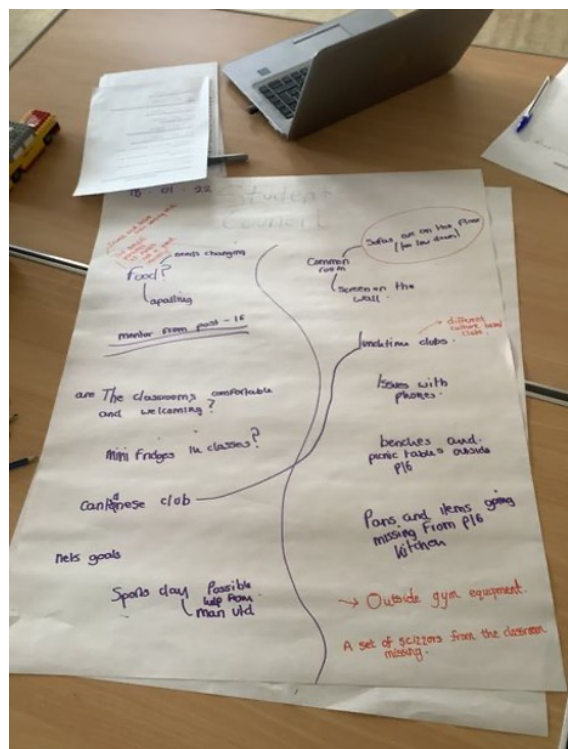 18 · 01 · 22
Student
Council
needs changing
Food?
apalling
mentor from post - 16
are The classrooms comfortable
and welcoming?
mini fridges in classes?
club
nets goals
Sports day Possible
help from
man utd
Sofas are on the floor
(too low down)
Common
room
Screen on the
wall.
different
culture based
clubs
lunchtime clubs.
Issues with
phones.
benches and
picnic tables outside
P16
Pans and items going
missing From P16
kitchen
→ Outside gym equipment.
A set of scizzors from the classroom
missing.